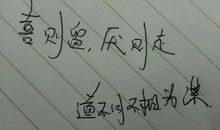 喜则留，厌则走
道不同不相为谋